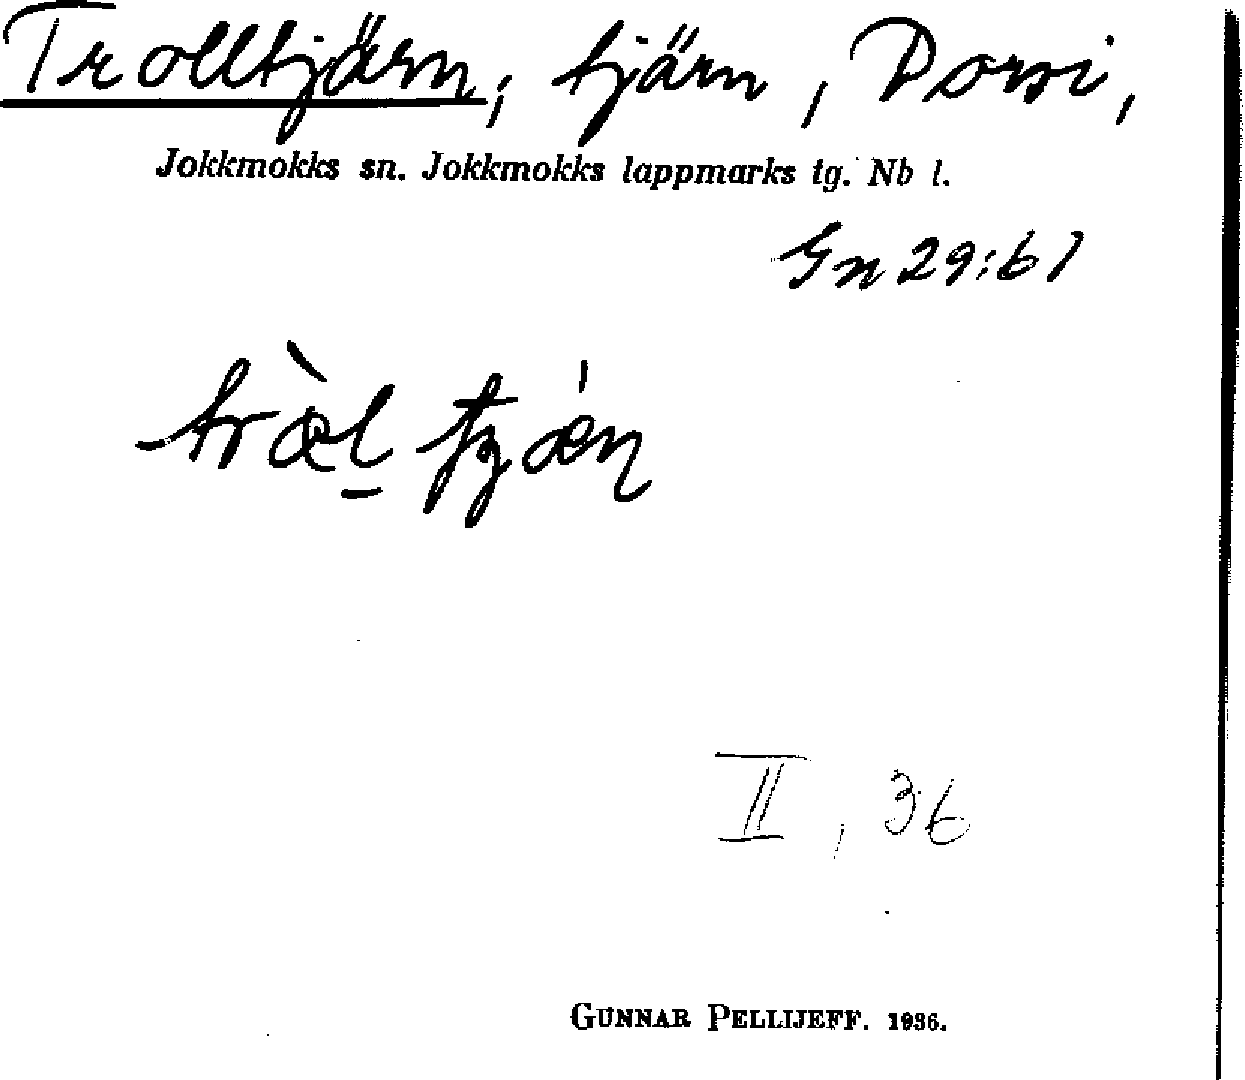 Trolltjärn; tjärn, Porsi,
Jokkmokks sn. Jokkmokks lappmarks tg. Nb l.
Gn 29:61
II, 36
GUNNAR PELLIJEFF. 1936.